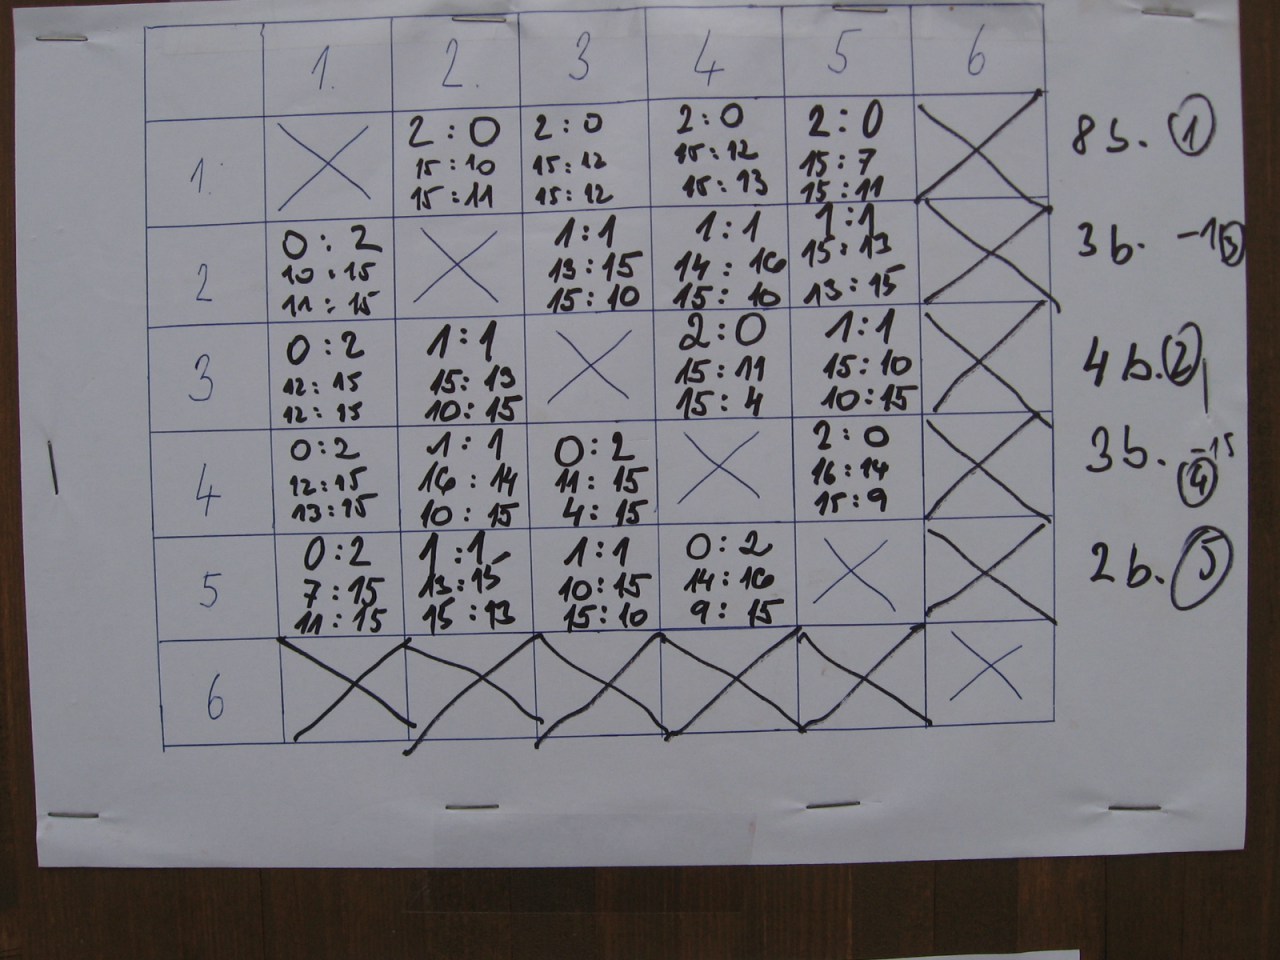 1. 2. 3 4 5 6
1. 2:0 2:0 2:0 2:0 8b. 1
15:10 15:12 15:12 15:7
15:11 15:12 15:13 15:11
2 0:2 1:1 1:1 1:1 3b.
10:15 13:15 14:16 15:13
11:15 15:10 15:10 13:15
3 0:2 1:1 2:0 1:1 4b. 2
12:15 15:13 15:11 15:10
12:15 10:15 15:4 10:15
4 0:2 1:1 0:2 2:0 3b. -15
12:15 16:14 11:15 16:14 4
13:15 10:15 4:15 15:9
5 0:2 1:1 1:1 0:2 2b. 5
7:15 13:15 10:15 14:16
11:15 15:13 15:10 9:15
6